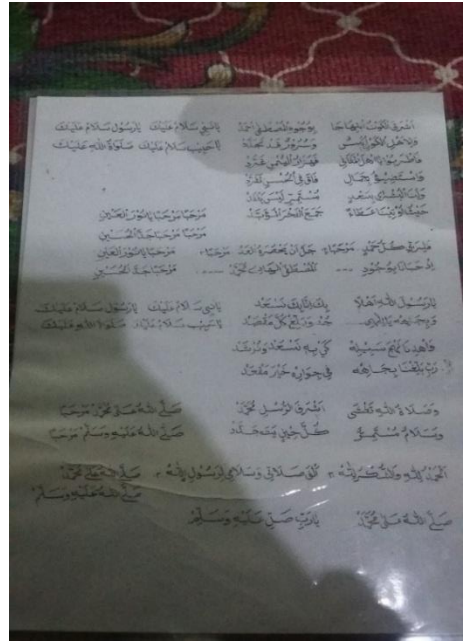 أشرق الكون ابتهاجا بوجود المصطفى احمد يا نبي سلام عليك يا رسول سلام عليك
ولأهل الكون أنس وسرور قد تجدد يا حبيب سلام عليك صلوات الله عليك
فاطربوا يا أهل المثاني فهزار اليمن غرد
واستضيئوا بجمال فاق في الحسن تفرد
ولنا البشرى بسعد مستمر ليس ينفد
حيث أوتينا عطاء جمع الفخر المؤبد مرحبا مرحبا يا نور العين
مرحبا مرحبا جد الحسين
فلربي كل حمد مرحبا جل أن يحصره العد مرحبا مرحبا يا نور العين
إذ حبانا بوجود المصطفى الهادي محمد مرحبا جد الحسين
يا رسول الله أهلا بك إنا بك نسعد يا نبي سلام عليك يا رسول سلام عليك
وبجاهه يا إلهي جد وبلغ كل مقصد يا حبيب سلام عليك صلوات الله عليك
واهدنا نهج سبيله كي به نسعد ونرشد
رب بلغنا بجاهه في جواره خير مقعد
وصلاة الله تغشى أشرف الرسل محمد صلى الله على محمد مرحبا
وسلام مستمر كل حين يتجدد صلى الله عليه وسلم مرحبا
الحمد لله والشكر لله ٢ كل صلاتي وسلامي لرسول الله ٢ صلى الله على محمد
صلى الله عليه وسلم
صلى الله على محمد يا رب صل عليه وسلم